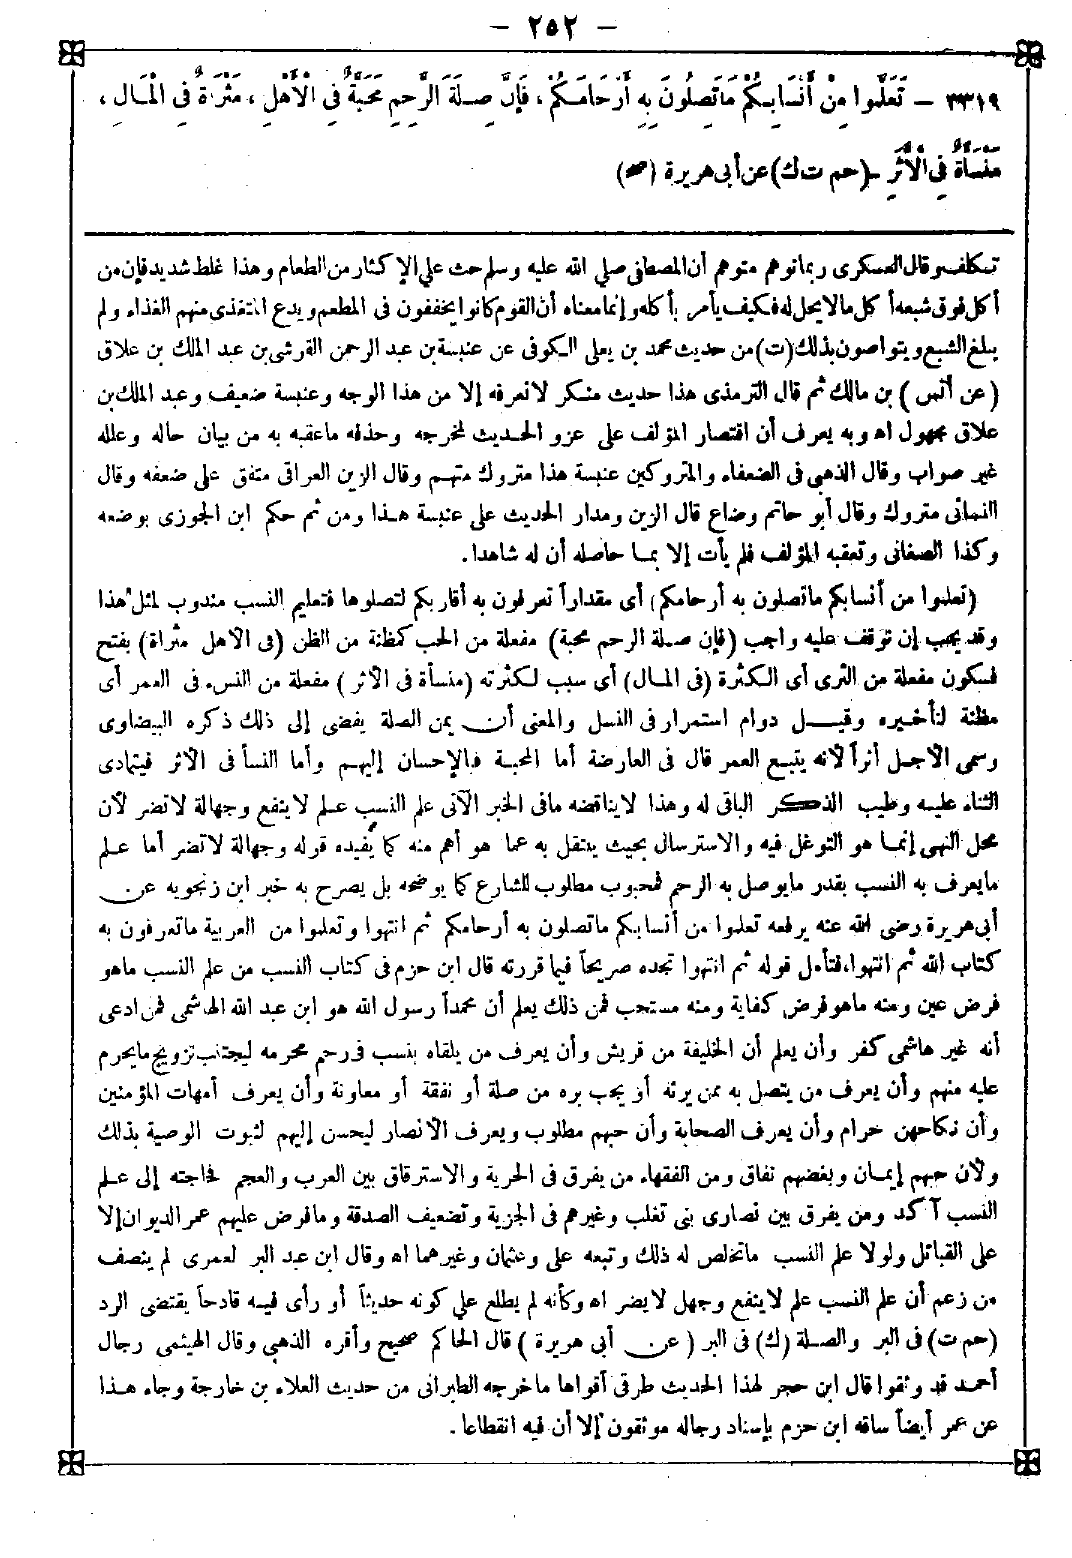 - ٢٥٢ -
٣٣١٩ - تَعَلَّمُوا مِنْ أَنْسَابِكُمْ مَا تَصِلُونَ بِهِ أَرْحَامَكُمْ، فَإِنَّ صِلَةَ الرَّحِمِ مَحَبَّةٌ فِي الْأَهْلِ، مَثْرَاةٌ فِي الْمَالِ،
مَنْسَأَةٌ فِي الْأَثَرِ - (حم ت ك) عن أبي هريرة (صح)
تكلف وقال العسكرى ربما توهم متوهم أن المصطفى صلي الله عليه وسلم حث علي الإكثار من الطعام وهذا غلط شديد فإن من
أكل فوق شبعه أكل مالايحل له فكيف يأمر بأكله وإنما معناه أن القوم كانوا يخففون فى المطعم ويدع المتغذى منهم الغذاء ولم
يبلغ الشبع ويتواصون بذلك (ت) من حديث محمد بن يعلى الكوفى عن عنبسة بن عبد الرحمن القرشى بن عبد الملك بن علاق
(عن أنس) بن مالك ثم قال الترمذى هذا حديث منكر لانعرفه إلا من هذا الوجه وعنبسة ضعيف وعبد الملك بن
علاق مجهول اه وبه يعرف أن اقتصار المؤلف على عزو الحديث لمخرجه وحذفه ماعقبه به من بيان حاله وعلله
غير صواب وقال الذهبى فى الضعفاء والمتروكين عنبسة هذا متروك متهم وقال الزين العراقى متفق على ضعفه وقال
النسائى متروك وقال أبو حاتم وضاع قال الزين ومدار الحديث على عنبسة هذا ومن ثم حكم ابن الجوزى بوضعه
وكذا الصغانى وتعقبه المؤلف فلم يأت إلا بما حاصله أن له شاهدا.
(تعلموا من أنسابكم ماتصلون به أرحامكم) أى مقداراً تعرفون به أقاربكم لتصلوها فتعليم النسب مندوب لمثل هذا
وقد يجب إن توقف عليه واجب (فإن صلة الرحم محبة) مفعلة من الحب كمظنة من الظن (فى الأهل مثراة) بفتح
فسكون مفعلة من الثرى أى الكثرة (فى المال) أى سبب لكثرته (منسأة فى الأثر) مفعلة من النسء فى العمر أى
مظنة لتأخيره وقيل دوام استمرار فى النسل والمعنى أن يمن الصلة يفضى إلى ذلك ذكره البيضاوى
وسمى الأجل أثراً لأنه يتبع العمر قال فى العارضة أما المحبة فبالإحسان إليهم وأما النسأ فى الأثر فيتمادى
الثناء عليه وطيب الذكر الباقى له وهذا لايناقضه مافى الخبر الآتى علم النسب علم لاينفع وجهالة لاتضر لأن
محل النهى إنما هو التوغل فيه والاسترسال بحيث يشتغل به عما هو أهم منه كما يفيده قوله وجهالة لاتضر أما علم
مايعرف به النسب بقدر مايوصل به الرحم فمحبوب مطلوب للشارع كما يوضحه بل يصرح به خبر ابن زنجويه عن
أبى هريرة رضى الله عنه يرفعه تعلموا من أنسابكم ماتصلون به أرحامكم ثم انتهوا وتعلموا من العربية ماتعرفون به
كتاب الله ثم انتهوا، فتأمل قوله ثم انتهوا تجده صريحاً فيما قررته قال ابن حزم فى كتاب النسب من علم النسب ماهو
فرض عين ومنه ماهو فرض كفاية ومنه مستحب فمن ذلك يعلم أن محمداً رسول الله هو ابن عبد الله الهاشمى فمن ادعى
أنه غير هاشمى كفر وأن يعلم أن الخليفة من قريش وأن يعرف من يلقاه بنسب فى رحم محرمه ليجتنب تزويج مايحرم
عليه منهم وأن يعرف من يتصل به ممن يرثه أو يجب بره من صلة أو نفقة أو معاونة وأن يعرف أمهات المؤمنين
وأن نكاحهن حرام وأن يعرف الصحابة وأن حبهم مطلوب ويعرف الأنصار ليحسن إليهم لثبوت الوصية بذلك
ولأن حبهم إيمان وبغضهم نفاق ومن الفقهاء من يفرق فى الحرية والاسترقاق بين العرب والعجم فحاجته إلى علم
النسب آكد ومن يفرق بين نصارى بنى تغلب وغيرهم فى الجزية وتضعيف الصدقة ومافرض عليهم عمر الديوان إلا
على القبائل ولولا علم النسب ماتخلص له ذلك وتبعه على وعثمان وغيرهما اه وقال ابن عبد البر لعمرى لم ينصف
من زعم أن علم النسب علم لاينفع وجهل لايضر اه وكأنه لم يطلع علي كونه حديثاً أو رأى فيه قادحاً يقتضى الرد
(حم ت) فى البر والصلة (ك) فى البر (عن أبى هريرة) قال الحاكم صحيح وأقره الذهبى وقال الهيثمى رجال
أحمد قد وثقوا قال ابن حجر لهذا الحديث طرق أقواها ماخرجه الطبرانى من حديث العلاء بن خارجة وجاء هذا
عن عمر أيضاً ساقه ابن حزم بإسناد رجاله موثقون إلا أن فيه انقطاعا.